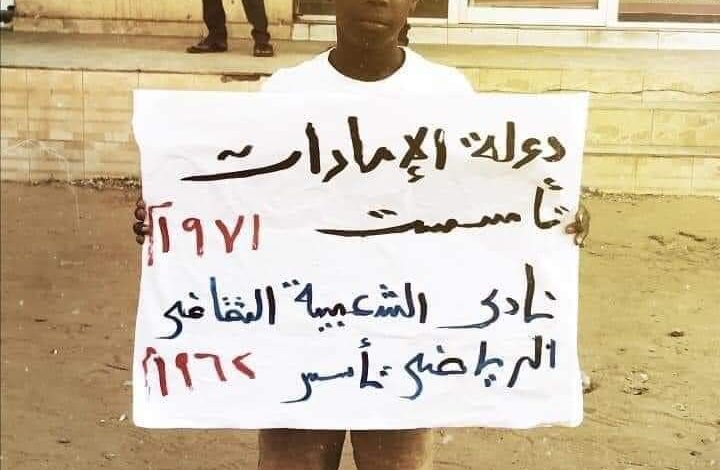 دولة الإمارات
تأسست ١٩٧١م
نادى الشعبية الثقافى
الرياضى تأسس ١٩٦٢م